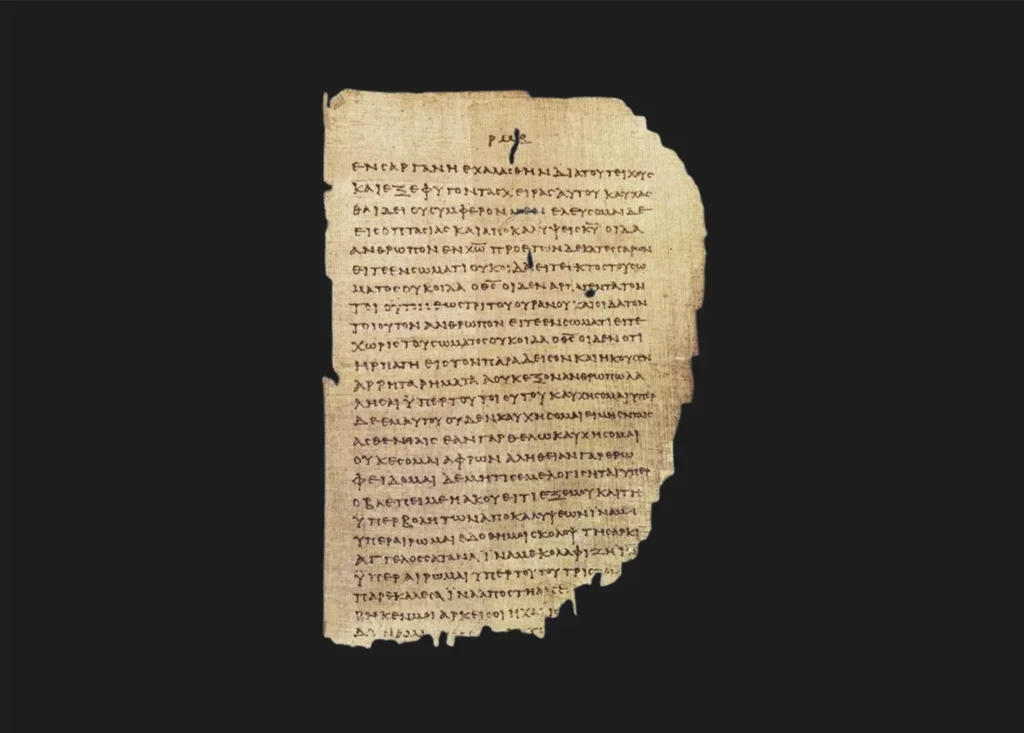 ΕΝ ΣΑΡΓΑΝΗ ΕΧΑΛΑΣΘΗΝ ΔΙΑ ΤΟΥ ΤΕΙΧΟΥΣ
ΚΑΙ ΕΞΕΦΥΓΟΝ ΤΑΣ ΧΕΙΡΑΣ ΑΥΤΟΥ ΚΑΥΧΑΣ
ΘΑΙ ΔΕΙ ΟΥ ΣΥΜΦΕΡΟΝ ΜΕΝ ΕΛΕΥΣΟΜΑΙ ΔΕ
ΕΙΣ ΟΠΤΑΣΙΑΣ ΚΑΙ ΑΠΟΚΑΛΥΨΕΙΣ Κ̅Υ̅ ΟΙΔΑ
ΑΝΘΡΩΠΟΝ ΕΝ Χ̅Ω̅ ΠΡΟ ΕΤΩΝ ΔΕΚΑΤΕΣΣΑΡΩΝ
ΕΙΤΕ ΕΝ ΣΩΜΑΤΙ ΟΥΚ ΟΙΔΑ ΕΙΤΕ ΕΚΤΟΣ ΤΟΥ ΣΩ
ΜΑΤΟΣ ΟΥΚ ΟΙΔΑ Ο Θ̅Σ̅ ΟΙΔΕΝ ΑΡΠΑΓΕΝΤΑ ΤΟΝ
ΤΟΙΟΥΤΟΝ ΕΩΣ ΤΡΙΤΟΥ ΟΥΡΑΝΟΥ ΚΑΙ ΟΙΔΑ ΤΟΝ
ΤΟΙΟΥΤΟΝ ΑΝΘΡΩΠΟΝ ΕΙΤΕ ΕΝ ΣΩΜΑΤΙ ΕΙΤΕ
ΧΩΡΙΣ ΤΟΥ ΣΩΜΑΤΟΣ ΟΥΚ ΟΙΔΑ Ο Θ̅Σ̅ ΟΙΔΕΝ ΟΤΙ
ΗΡΠΑΓΗ ΕΙΣ ΤΟΝ ΠΑΡΑΔΕΙΣΟΝ ΚΑΙ ΗΚΟΥΣΕΝ
ΑΡΡΗΤΑ ΡΗΜΑΤΑ Α ΟΥΚ ΕΞΟΝ ΑΝΘΡΩΠΩ ΛΑ
ΛΗΣΑΙ ΫΠΕΡ ΤΟΥ ΤΟΙΟΥΤΟΥ ΚΑΥΧΗΣΟΜΑΙ ΥΠΕΡ
ΔΕ ΕΜΑΥΤΟΥ ΟΥΔΕΝ ΚΑΥΧΗΣΟΜΑΙ ΕΙ ΜΗ ΕΝ ΤΑΙΣ
ΑΣΘΕΝΕΙΑΙΣ ΕΑΝ ΓΑΡ ΘΕΛΩ ΚΑΥΧΗΣΟΜΑΙ
ΟΥΚ ΕΣΟΜΑΙ ΑΦΡΩΝ ΑΛΗΘΕΙΑΝ ΓΑΡ ΕΡΩ
ΦΕΙΔΟΜΑΙ ΔΕ ΜΗ ΤΙΣ ΕΜΕ ΛΟΓΙΣΗΤΑΙ ΥΠΕΡ
Ο ΒΛΕΠΕΙ ΜΕ Η ΑΚΟΥΕΙ ΤΙ ΕΞ ΕΜΟΥ ΚΑΙ ΤΗ
ΫΠΕΡΒΟΛΗ ΤΩΝ ΑΠΟΚΑΛΥΨΕΩΝ ΙΝΑ ΜΗ
ΥΠΕΡΑΙΡΩΜΑΙ ΕΔΟΘΗ ΜΟΙ ΣΚΟΛΟΨ ΤΗ ΣΑΡΚΙ
ΑΓΓΕΛΟΣ ΣΑΤΑΝΑ ΪΝΑ ΜΕ ΚΟΛΑΦΙΖΗ
ΫΠΕΡΑΙΡΩΜΑΙ ΥΠΕΡ ΤΟΥΤΟΥ ΤΡΙΣ
ΠΑΡΕΚΑΛΕΣΑ ΪΝΑ ΑΠΟΣΤΗ
ΡΗΚΕΝ ΜΟΙ ΑΡΚΕΙ ΣΟΙ Η ΧΑ